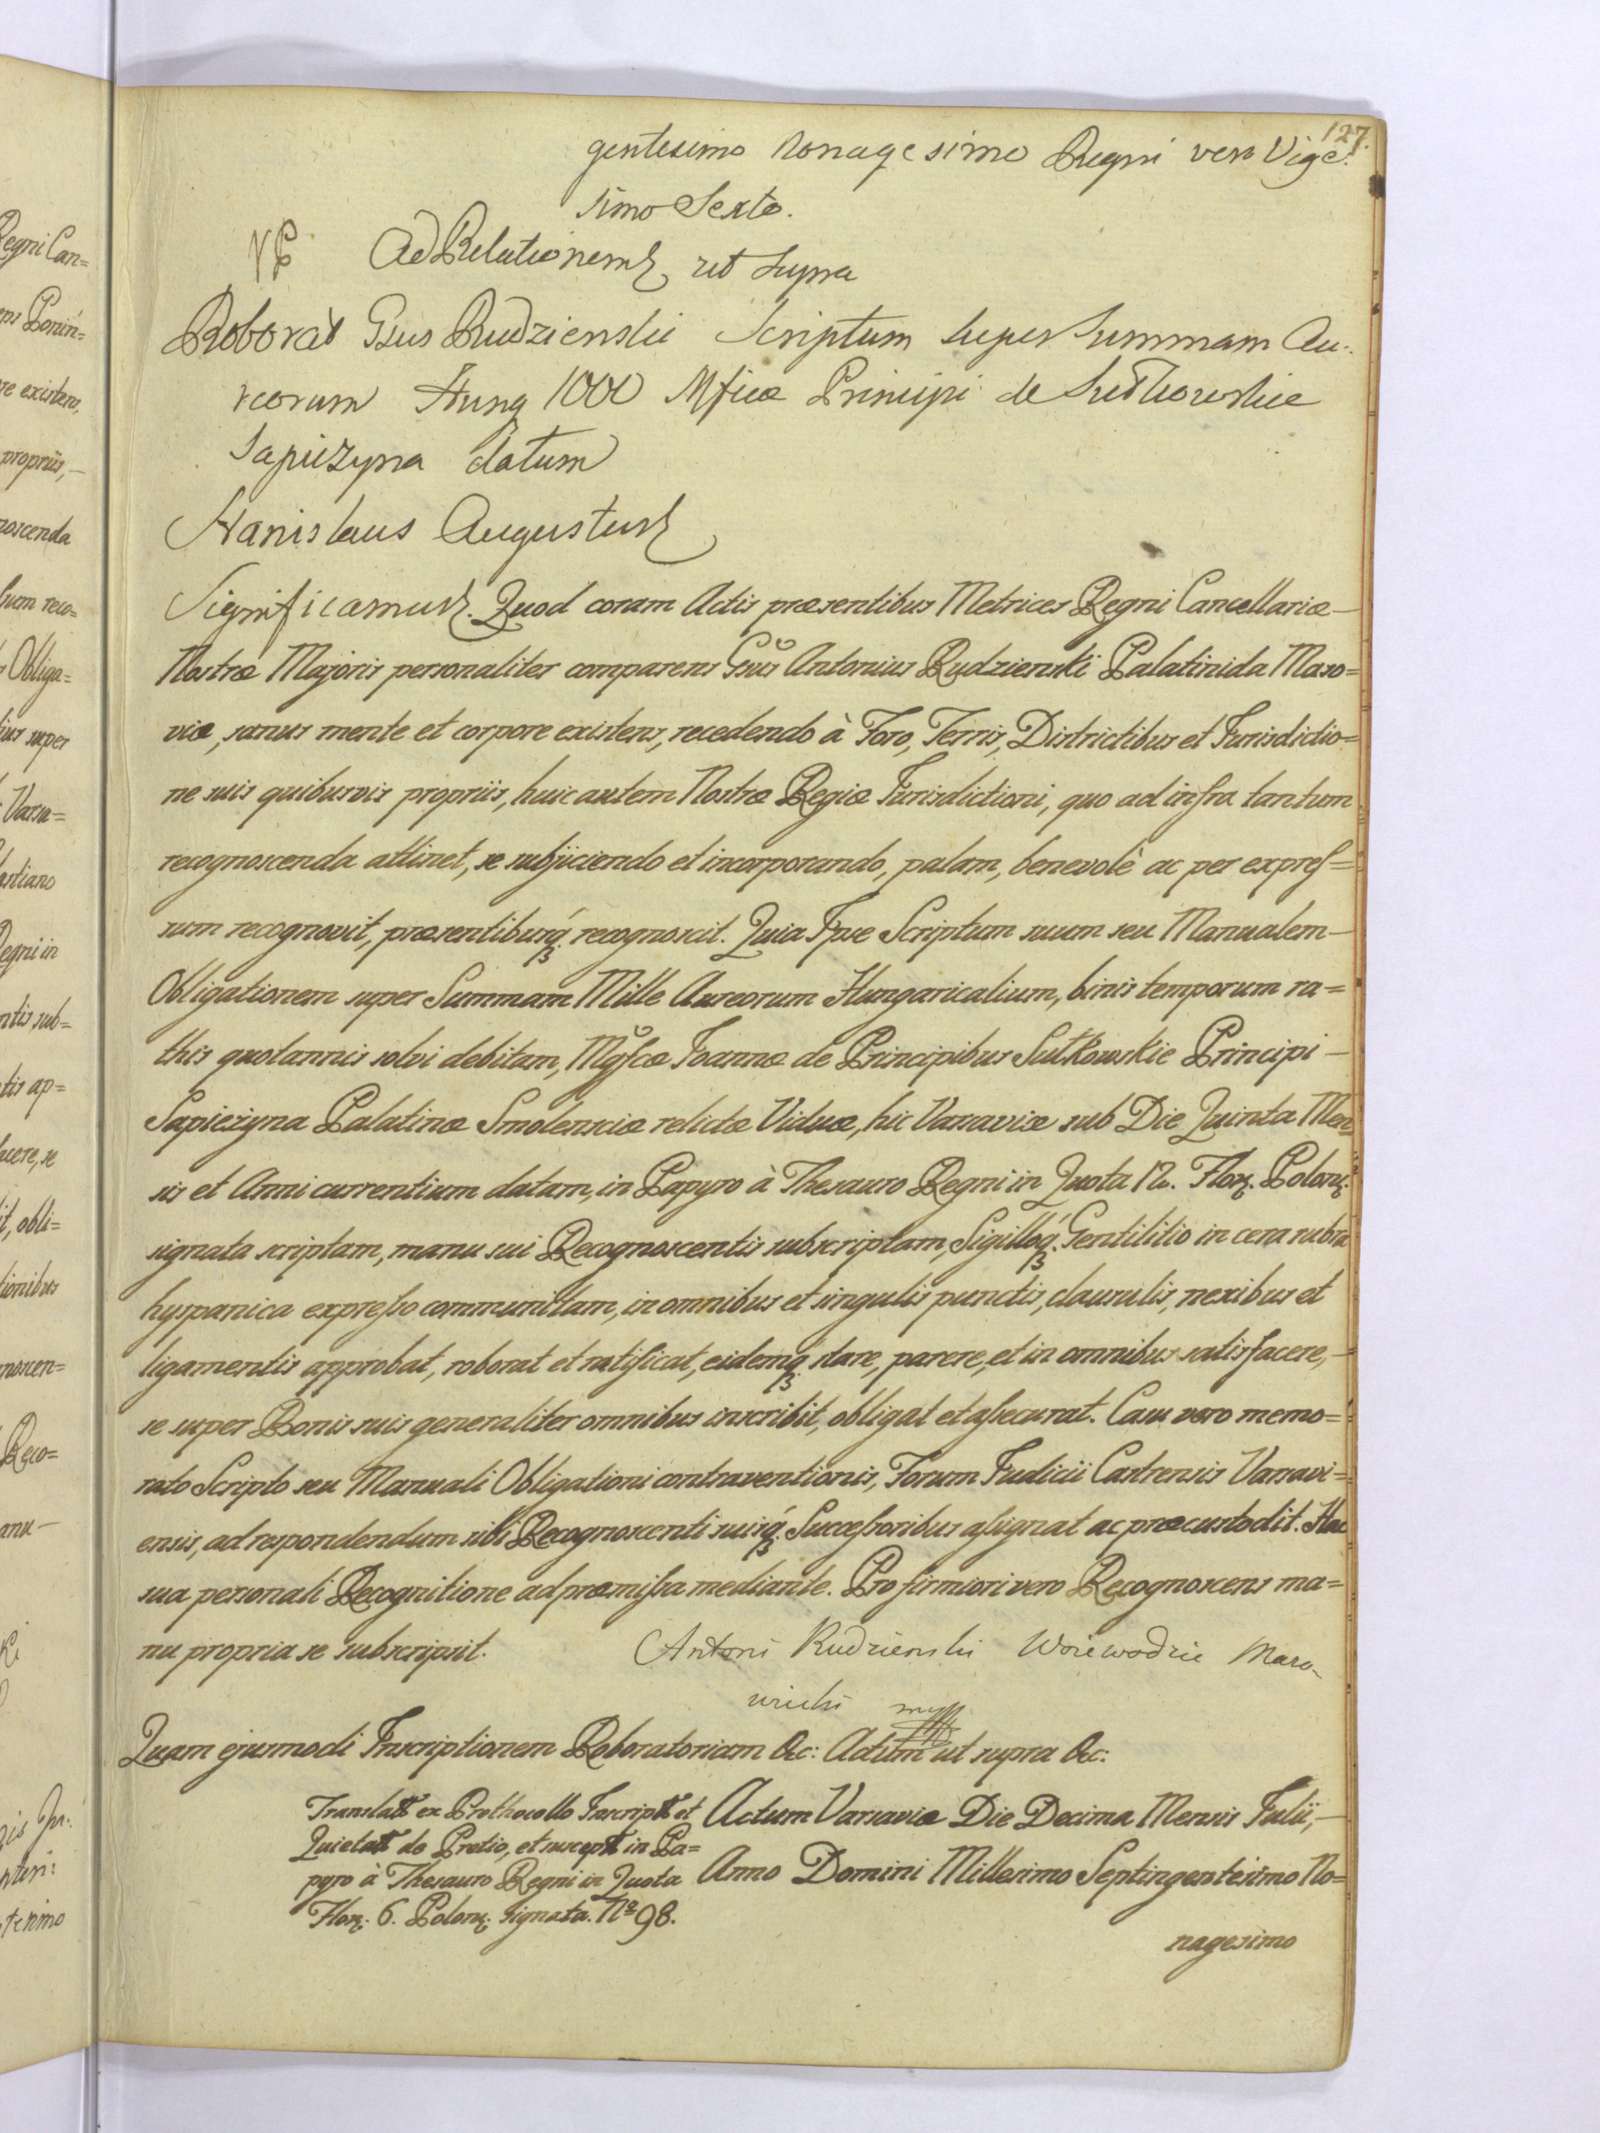 127.
gentesimo Nonagesimo Regni vero Vige:
simo Sexto.
VP Ad Relationem ut Supra
Roborat Gsus Rudzienski Scriptum super Summam Au:
reorum Hung 1000 Mficæ Principi de Sułkowskie
Sapieżyna datum
Stanislaus Augustus
Significamus. Quod coram Actis præsentibus Metrices Regni Cancellariæ
Nostræ Majoris personaliter comparens Gsus Antonius Rudzienski Palatinida Maso=
viæ, sanus mente et corpore existens, recedendo à Foro, Terris, Districtibus et Jurisdictio=
ne suis quibusvis propriis, huic autem Nostræ Regiæ Jurisdictioni, quo ad infra tantum
recognoscenda attinet, se subjiciendo et incorporando, palam, benevolè ac per expreſ=
sum recognovit, præsentibusq́ recognoscit. Quia Ipse Scriptum suum seu Manualem
Obligationem super Summam Mille Aureorum Hungaricalium, binis temporum ra=
this quotannis solvi debitam, Mgficæ Joannæ de Principibus Sułkowskie Principi
Sapieżyna Palatinæ Smolensciæ relictæ Viduæ, hic Varsaviæ sub Die Quinta Men
sis et Anni currentium datam, in Papyro à Thesauro Regni in Quota 12. Flor. Polon.
signata scriptam, manu sui Recognoscentis subscriptam, Sigilloq́ Gentilitio in cera rubra
hyspanica expreſso communitam, in omnibus et singulis punctis, clausulis, nexibus et
ligamentis approbat, roborat et ratificat, eidemq́ stare, parere, et in omnibus satisfacere,
se super Bonis suis generaliter omnibus inscribit, obligat et aſsecurat. Casu vero memo=
rato Scripto seu Manuali Obligationi contraventionis, Forum Judicii Castrensis Varsavi=
ensis, ad respondendum sibi Recognoscenti suisq́ Succeſsoribus aſsignat ac præcustodit. Hac
sua personali Recognitione ad præmiſsa mediante. Pro firmiori vero Recognoscens ma=
nu propria se subscripsit. Antoni Rudzienski Woiewodzic Mazo
wiecki mp
Quam ejusmodi Inscriptionem Roboratoriam &c: Actum ut supra &c:
Translatt ex Prothocollo Inscriptt et
Quietatt de Pretio, et susceptt in Pa=
pyro à Thesauro Regni in Quota
Flor. 6. Polon. Signata. No 98.
Actum Varsaviæ Die Decima Mensis Julii,
Anno Domini Millesimo Septingentesimo No=
nagesimo